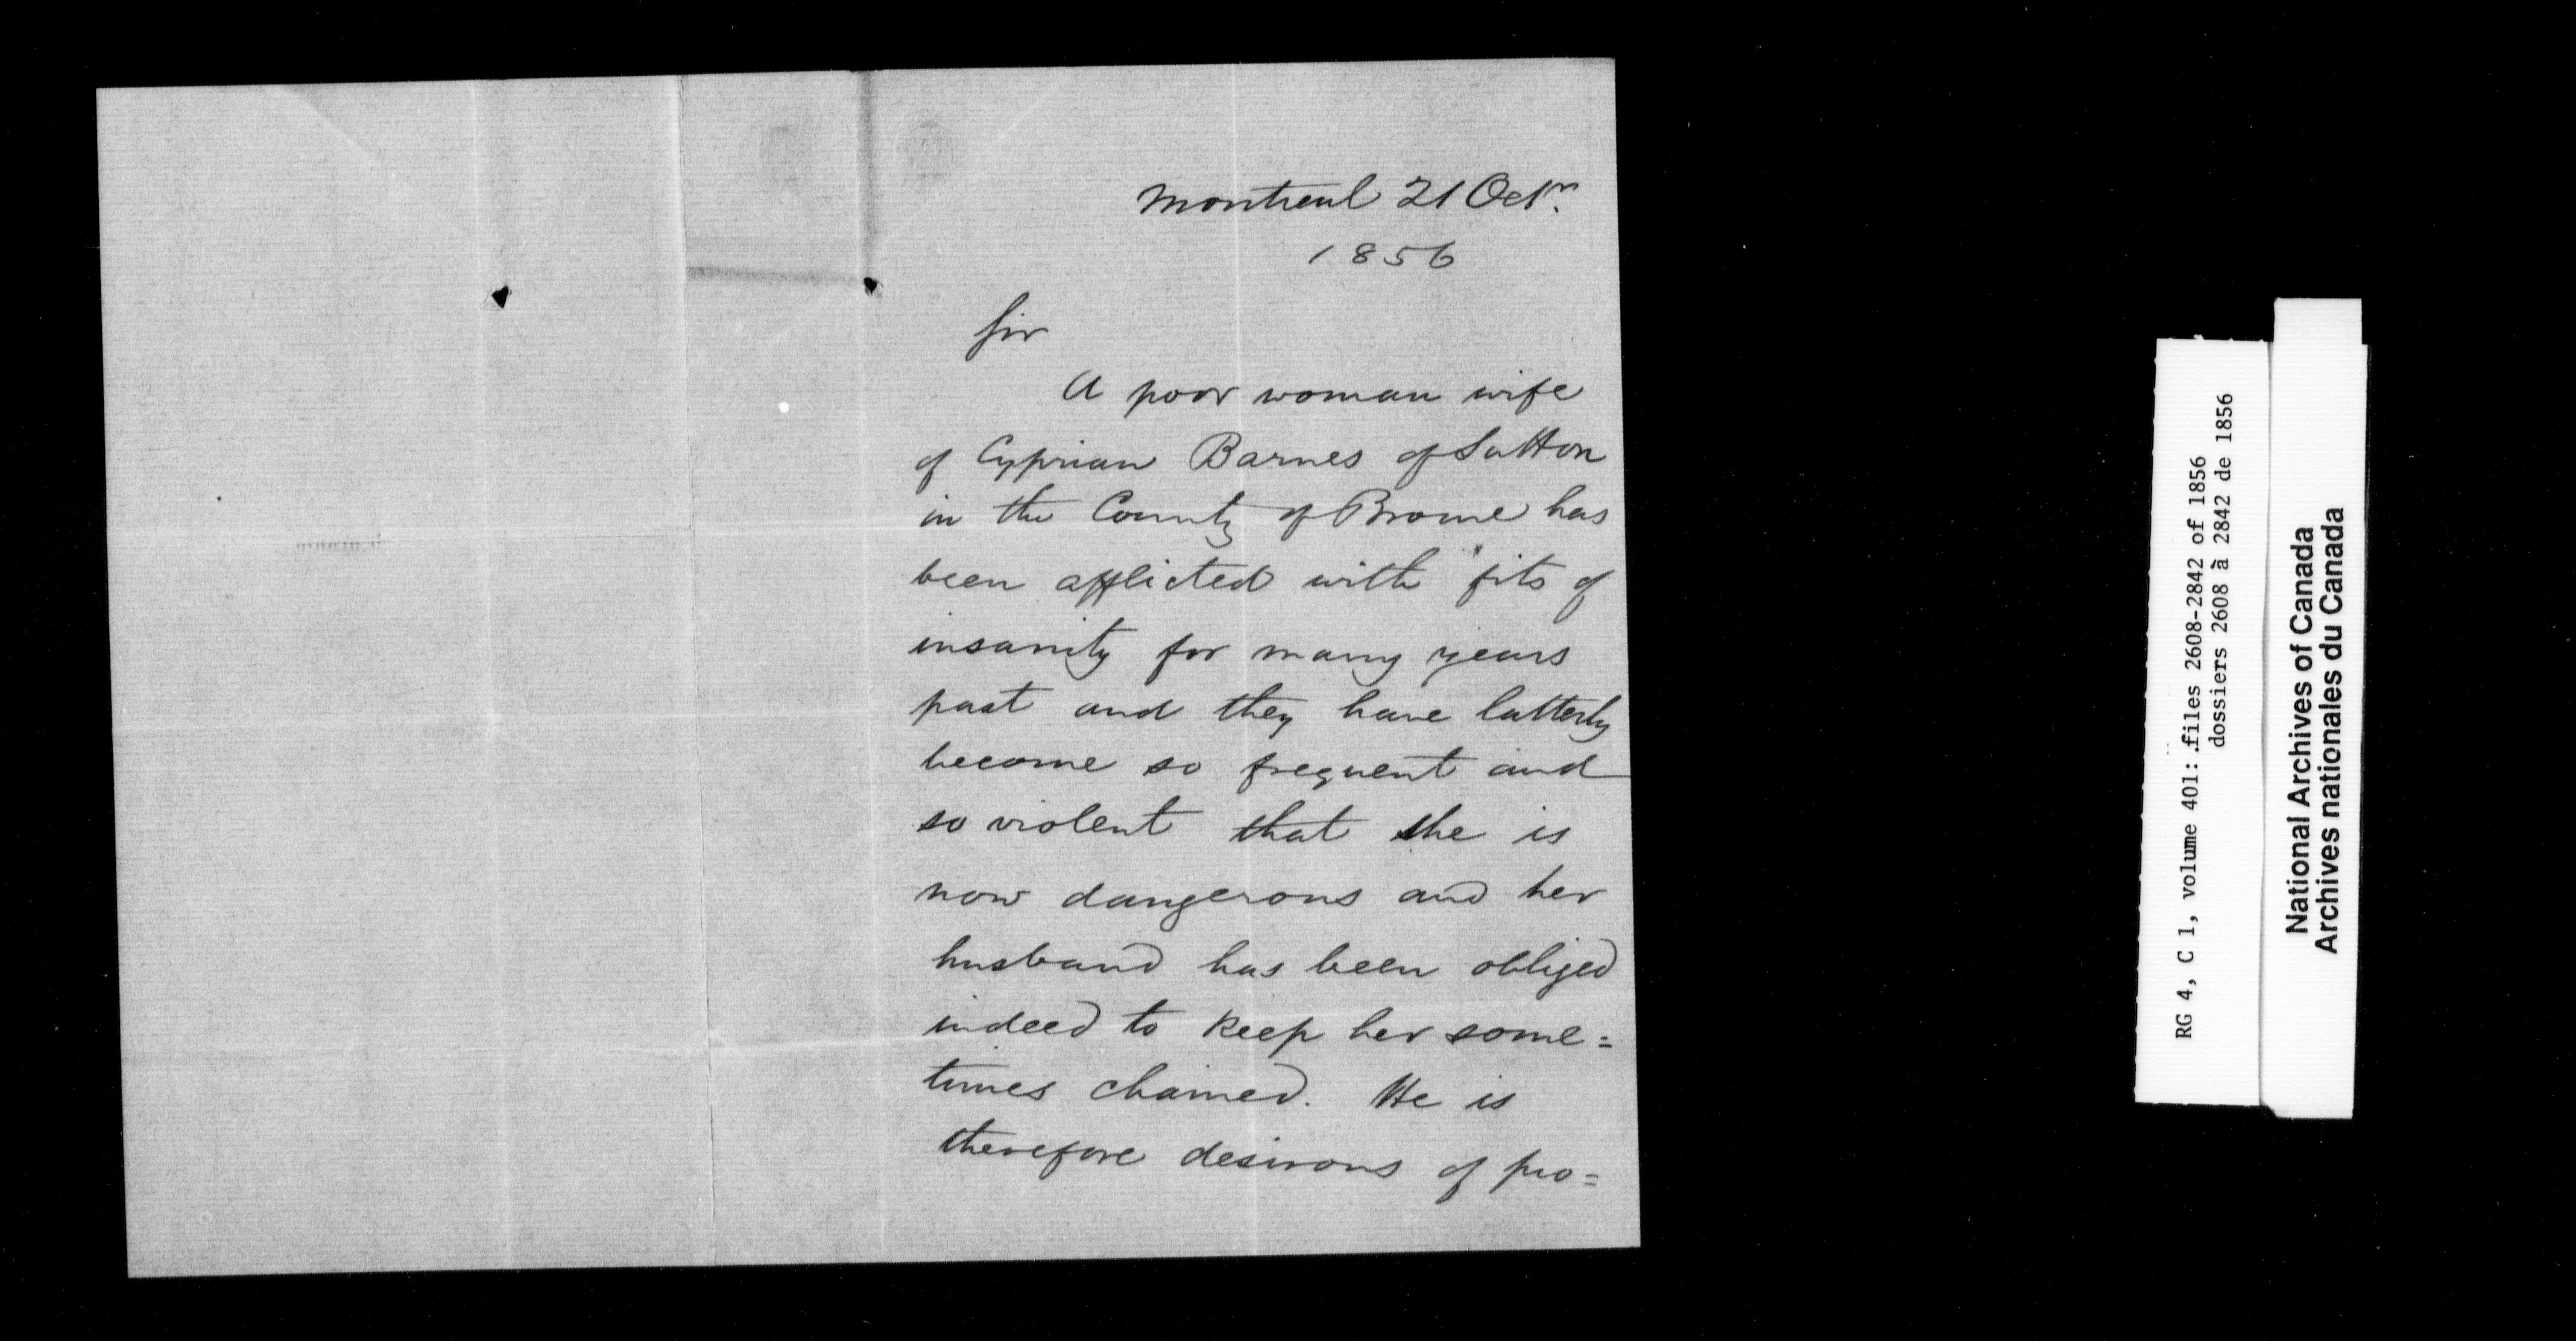 Montreal 21 Octr.
1856
Sir
A poor woman wife
of Cyprian Barnes of Sutton
in the County of Brome has
been afflicted with fits of
insanity for many years
past and they have latterly
become so frequent and
so violent that she is
now dangerous and her
husband has been obliged
indeed to keep her some=
times chained. He is
therefore desirous of pro=
RG 4, C 1, volume 401: files 2608-2842 of 1856
dossiers 2608 à 2842 de 1856
National Archives of Canada
Archives nationales du Canada